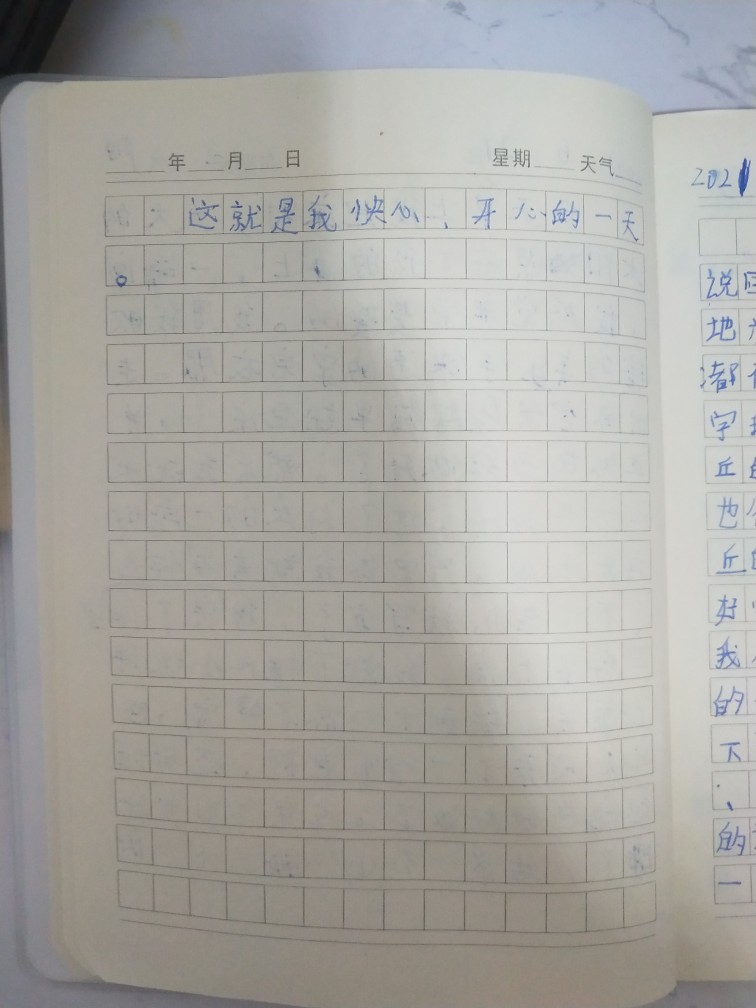 年 月 日 星期 天气
这就是我快心、开心的一天
。
2021
说
地
渚
字
丘
也
丘
好
我
的
下
、
的
一